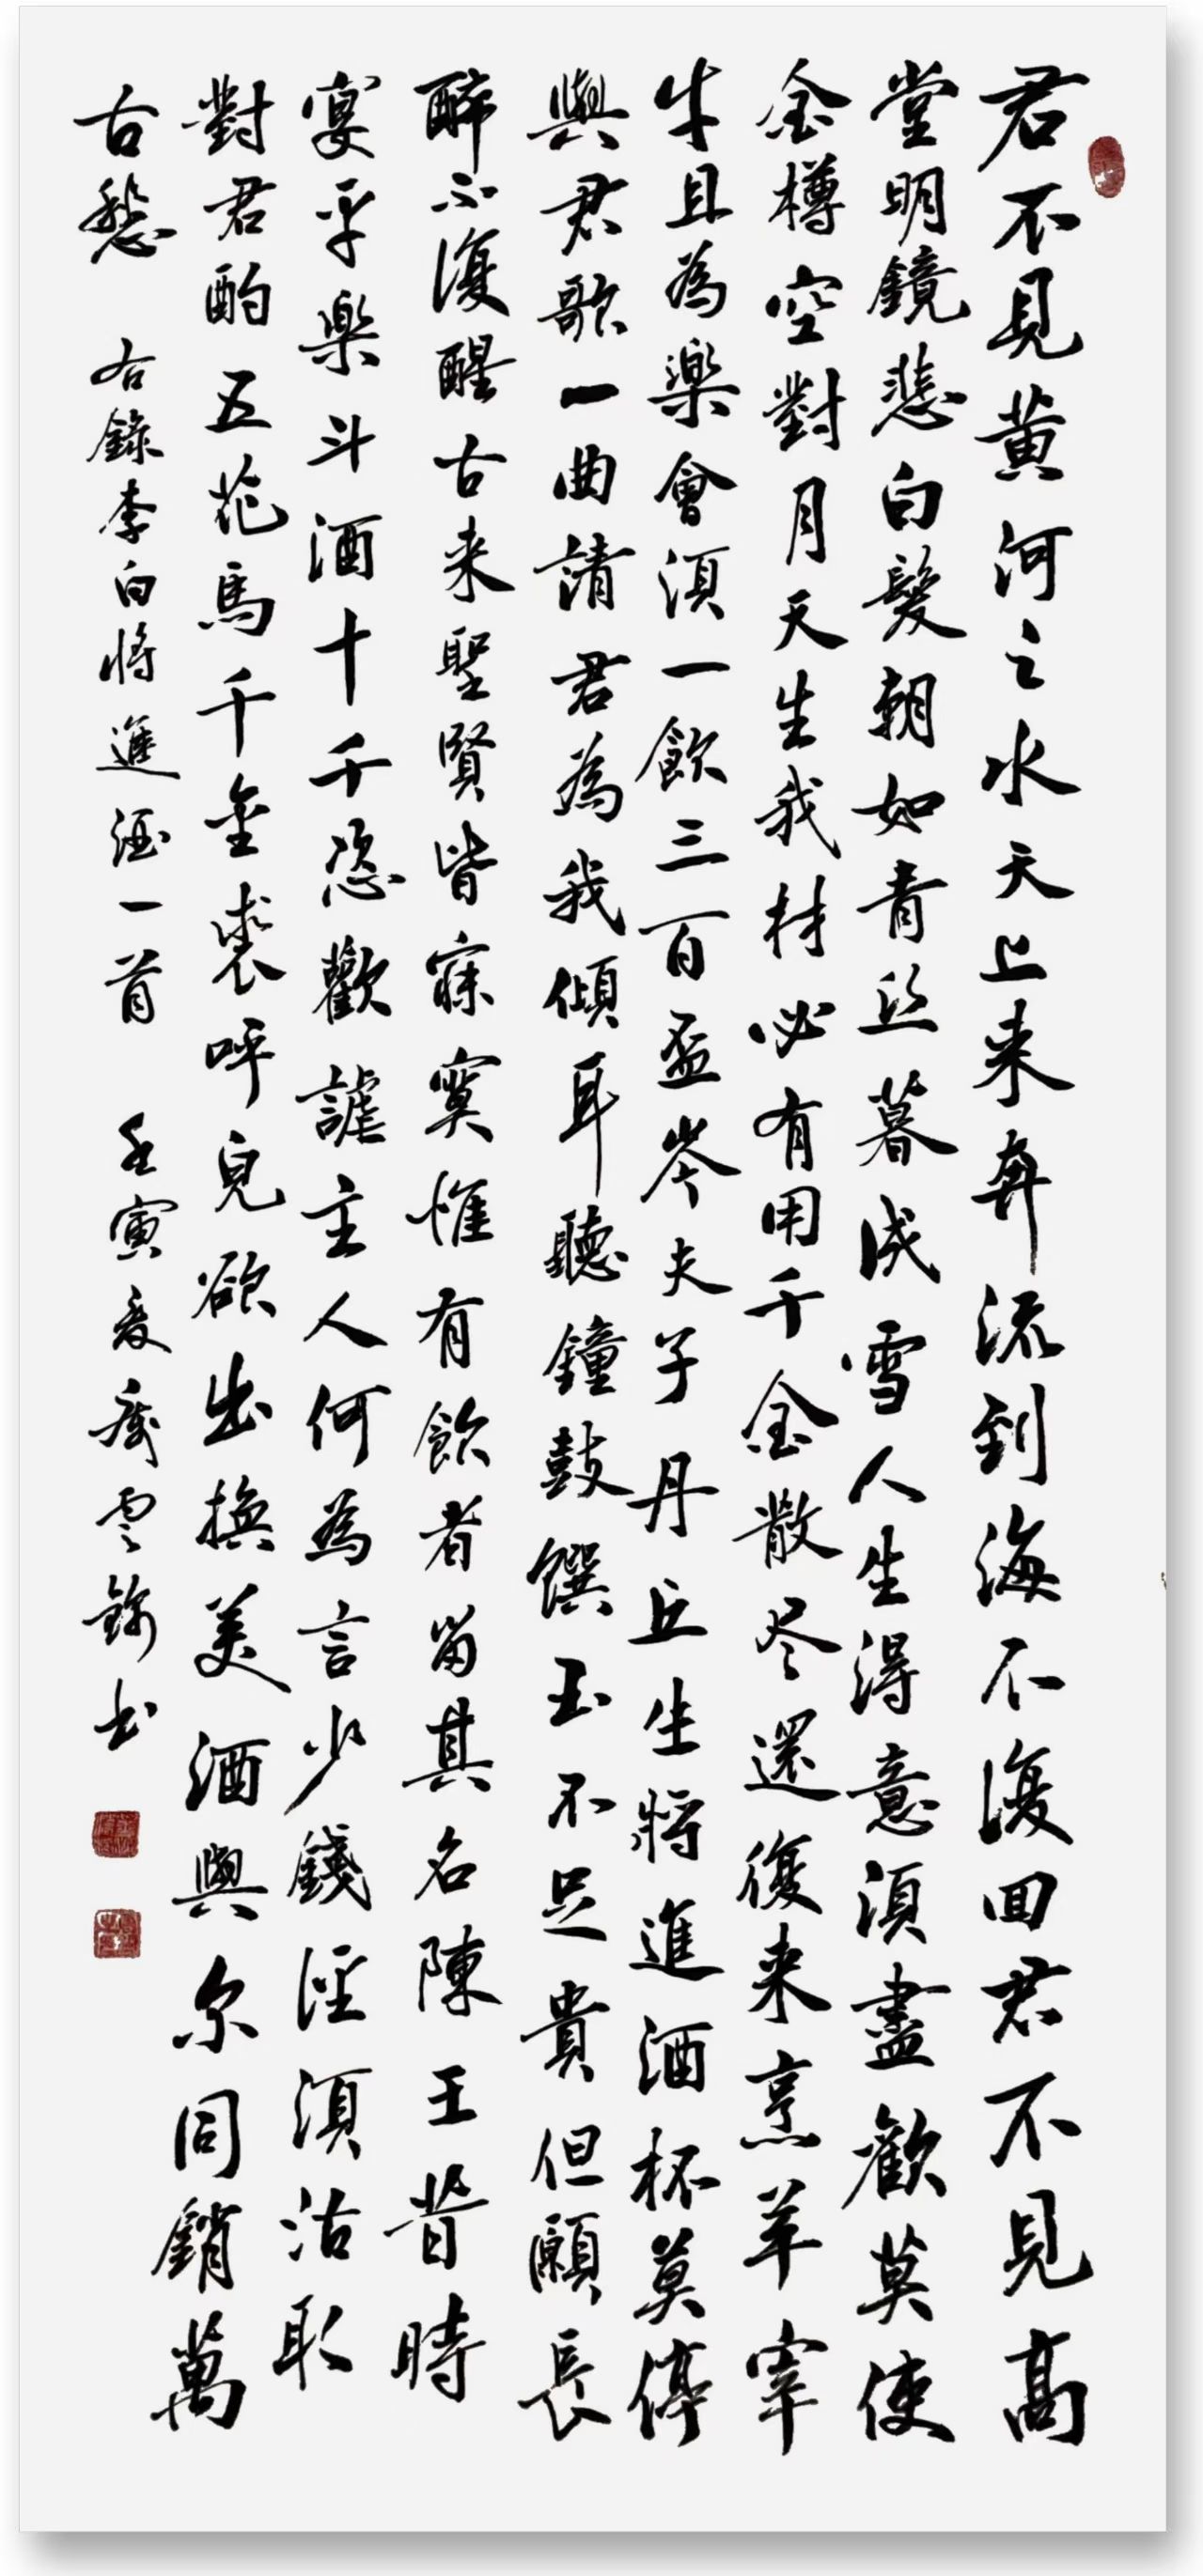 君不見黃河之水天上来奔流到海不復回君不見高
堂明鏡悲白髮朝如青丝暮成雪人生得意須盡歡莫使
金樽空對月天生我材必有用千金散尽還復来烹羊宰
牛且為樂會須一飲三百盃岑夫子丹丘生將進酒杯莫停
與君歌一曲請君為我傾耳聽鐘鼓饌玉不足貴但願長
醉不復醒古来聖賢皆寂寞惟有飲者留其名陳王昔時
宴平樂斗酒十千恣歡謔主人何為言少錢径須沽取
對君酌五花馬千金裘呼兒欲出換美酒與尔同銷萬
古愁 右錄李白將進酒一首 壬寅夏 雲錦书